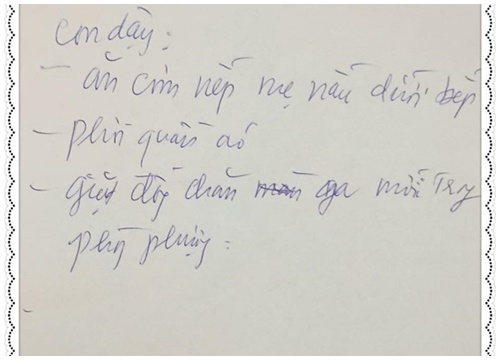 Con dậy:
- ăn cơm nếp mẹ nấu dưới bếp
- phơi quần áo
- giặt đống chăn màn ga mới Trong
phòng